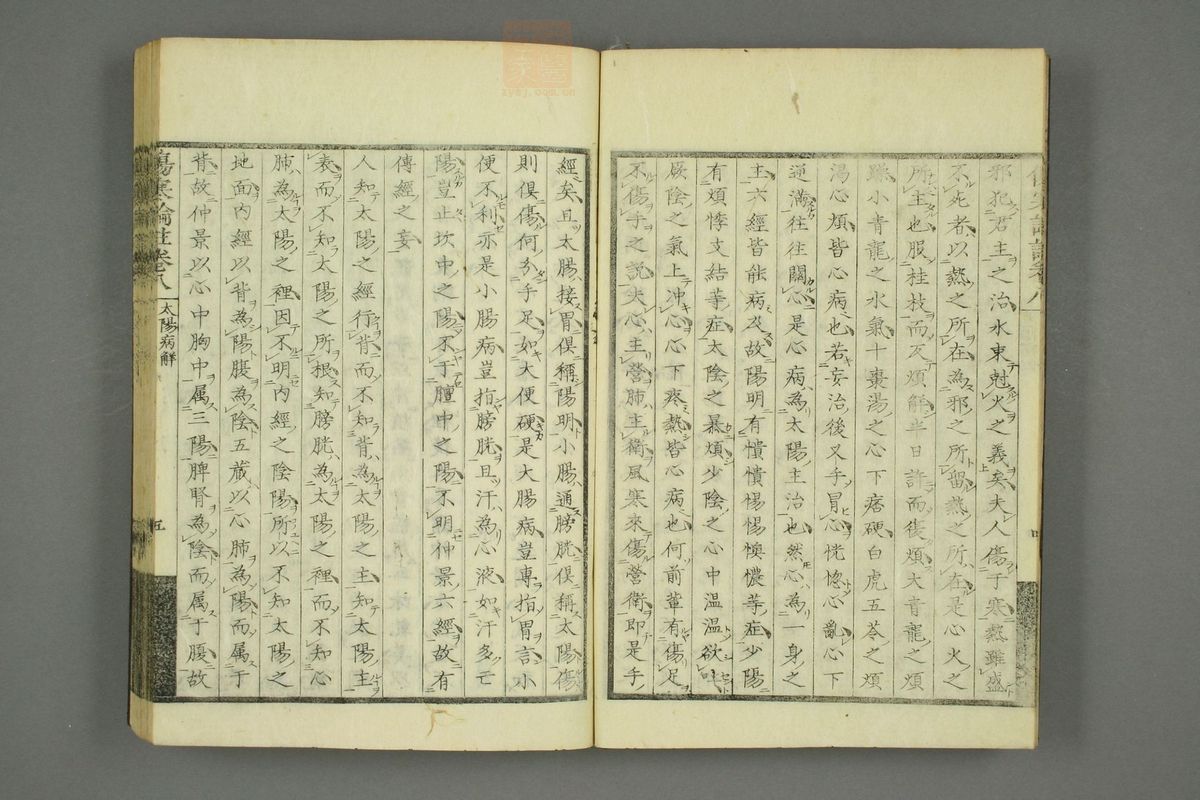 邪犯君主之治水東尅火之義矣夫人傷于寒熱雖盛
不死者以熱之所在為邪之所留熱之所在是心火之
所主也服桂枝而反煩解半日許而復煩大青龍之煩
躁小青龍之水氣十棗湯之心下痞硬白虎五苓之煩
渴心煩皆心病也若妄治後叉手冒心恍惚心亂心下
逆滿往往關心是心病為太陽主治也然心為一身之
主六經皆能病及故陽明有憒憒惕惕懊憹等症少陽
有煩悸支結等症太陰之暴煩少陰之心中温温欲吐
厥陰之氣上冲心心下疼熱皆心病也何前輩有傷足
不傷手之說夫心主營肺主衛風寒來傷營衛即是手
經矣且太腸接胃俱稱陽明小腸通膀胱俱稱太陽傷
則俱傷何分手足如大便硬是大腸病豈專指胃言小
便不利亦是小腸病豈指膀胱且汗為心液如汗多亡
陽豈止坎中之陽不于膻中之陽不明仲景六經故有
傳經之妄
人知太陽之經行背而不知背為太陽之主知太陽主
表而不知太陽之所根知膀胱為太陽之裡而不知心
肺為太陽之裡因不明內經之陰陽所以不知太陽之
地面內經以背為陽腹為陰五藏以心肺為陽而属于
背故仲景以心中胸中属三陽脾腎為陰而属于腹故
傷寒論註卷八
太陽病解
五
四
zysj.com.cn